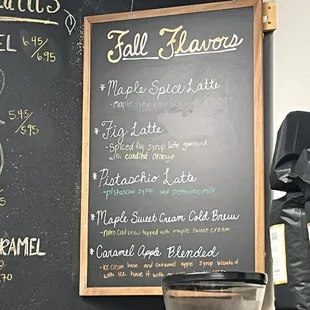 EL
6.45/
6.95
5.45/
5.95
ARAMEL
Fall Flavors
* Maple Spice Latte
- maple syrup
* Fig Latte
- Spiced fig syrup latte garnished
with candied orange
* Pistaschio Latte
- pistaschio syrup and pistaschio milk
* Maple Sweet Cream Cold Brew
- Nitro cold brew topped with maple sweet cream
* Caramel Apple Blended
- Ice cream base and caramel apple syrup blended
with ice. have it with